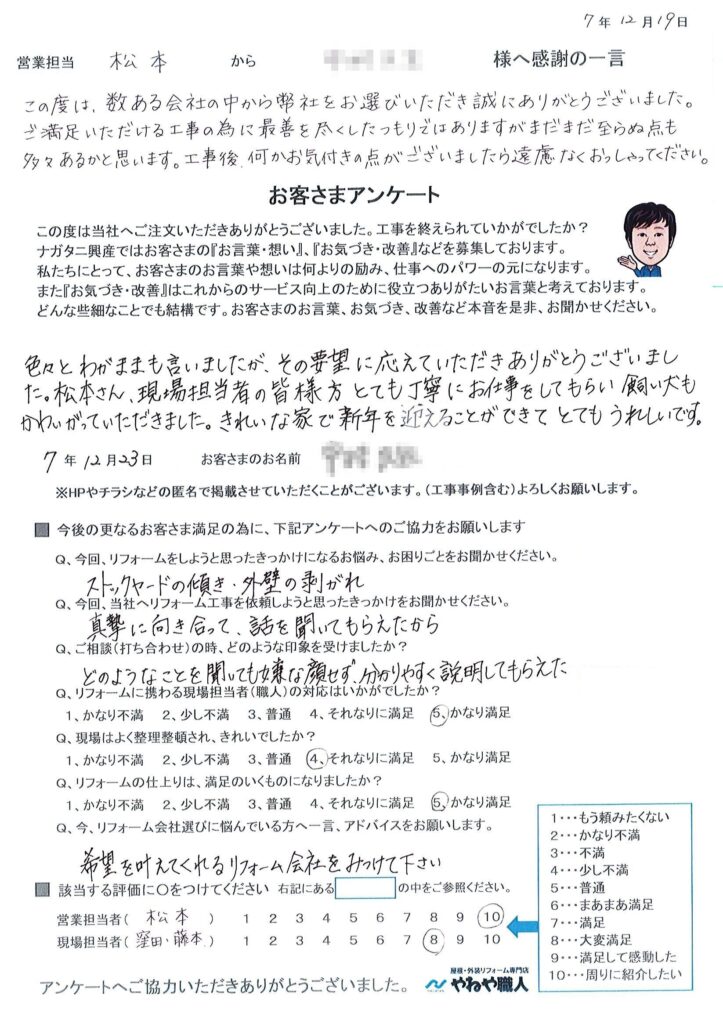 7年12月19日
営業担当 松本 から 様へ感謝の一言
この度は、数ある会社の中から弊社をお選びいただき誠にありがとうございました。
ご満足いただける工事の為に最善を尽くしたつもりではありますがまだまだ至らぬ点も
多々あるかと思います。工事後、何かお気付きの点がございましたら遠慮なくおっしゃってください。
お客さまアンケート
この度は当社へご注文いただきありがとうございました。工事を終えられていかがでしたか？
ナガタニ興産ではお客さまの『お言葉・想い』、『お気づき・改善』などを募集しております。
私たちにとって、お客さまのお言葉や想いは何よりの励み、仕事へのパワーの元になります。
また『お気づき・改善』はこれからのサービス向上のために役立つありがたいお言葉と考えております。
どんな些細なことでも結構です。お客さまのお言葉、お気づき、改善など本音を是非、お聞かせください。
色々とわがままも言いましたが、その要望に応えていただきありがとうございまし
た。松本さん、現場担当者の皆様方とても丁寧にお仕事をしてもらい飼い犬も
かわいがっていただきました。きれいな家で新年を迎えることができてとてもうれしいです。
7年12月23日 お客さまのお名前
※HPやチラシなどの匿名で掲載させていただくことがございます。（工事事例含む）よろしくお願いします。
■ 今後の更なるお客さま満足の為に、下記アンケートへのご協力をお願いします
Q、今回、リフォームをしようと思ったきっかけになるお悩み、お困りごとをお聞かせください。
ストックヤードの傾き・外壁の剥がれ
Q、今回、当社へリフォーム工事を依頼しようと思ったきっかけをお聞かせください。
真摯に向き合って、話を聞いてもらえたから
Q、ご相談（打ち合わせ）の時、どのような印象を受けましたか？
どのようなことを聞いても嫌な顔せず、分かりやすく説明してもらえた
Q、リフォームに携わる現場担当者（職人）の対応はいかがでしたか？
1、かなり不満 2、少し不満 3、普通 4、それなりに満足 5、かなり満足
Q、現場はよく整理整頓され、きれいでしたか？
1、かなり不満 2、少し不満 3、普通 4、それなりに満足 5、かなり満足
Q、リフォームの仕上りは、満足のいくものになりましたか？
1、かなり不満 2、少し不満 3、普通 4、それなりに満足 5、かなり満足
Q、今、リフォーム会社選びに悩んでいる方へ一言、アドバイスをお願いします。
希望を叶えてくれるリフォーム会社をみつけて下さい
■ 該当する評価に○をつけてください 右記にある の中をご参照ください。
営業担当者（ 松本 ） 1 2 3 4 5 6 7 8 9 10
現場担当者（窪田・藤本） 1 2 3 4 5 6 7 8 9 10
1・・・もう頼みたくない
2・・・かなり不満
3・・・不満
4・・・少し不満
5・・・普通
6・・・まあまあ満足
7・・・満足
8・・・大変満足
9・・・満足して感動した
10・・・周りに紹介したい
アンケートへご協力いただきありがとうございました。
屋根・外装リフォーム専門店
やねや職人